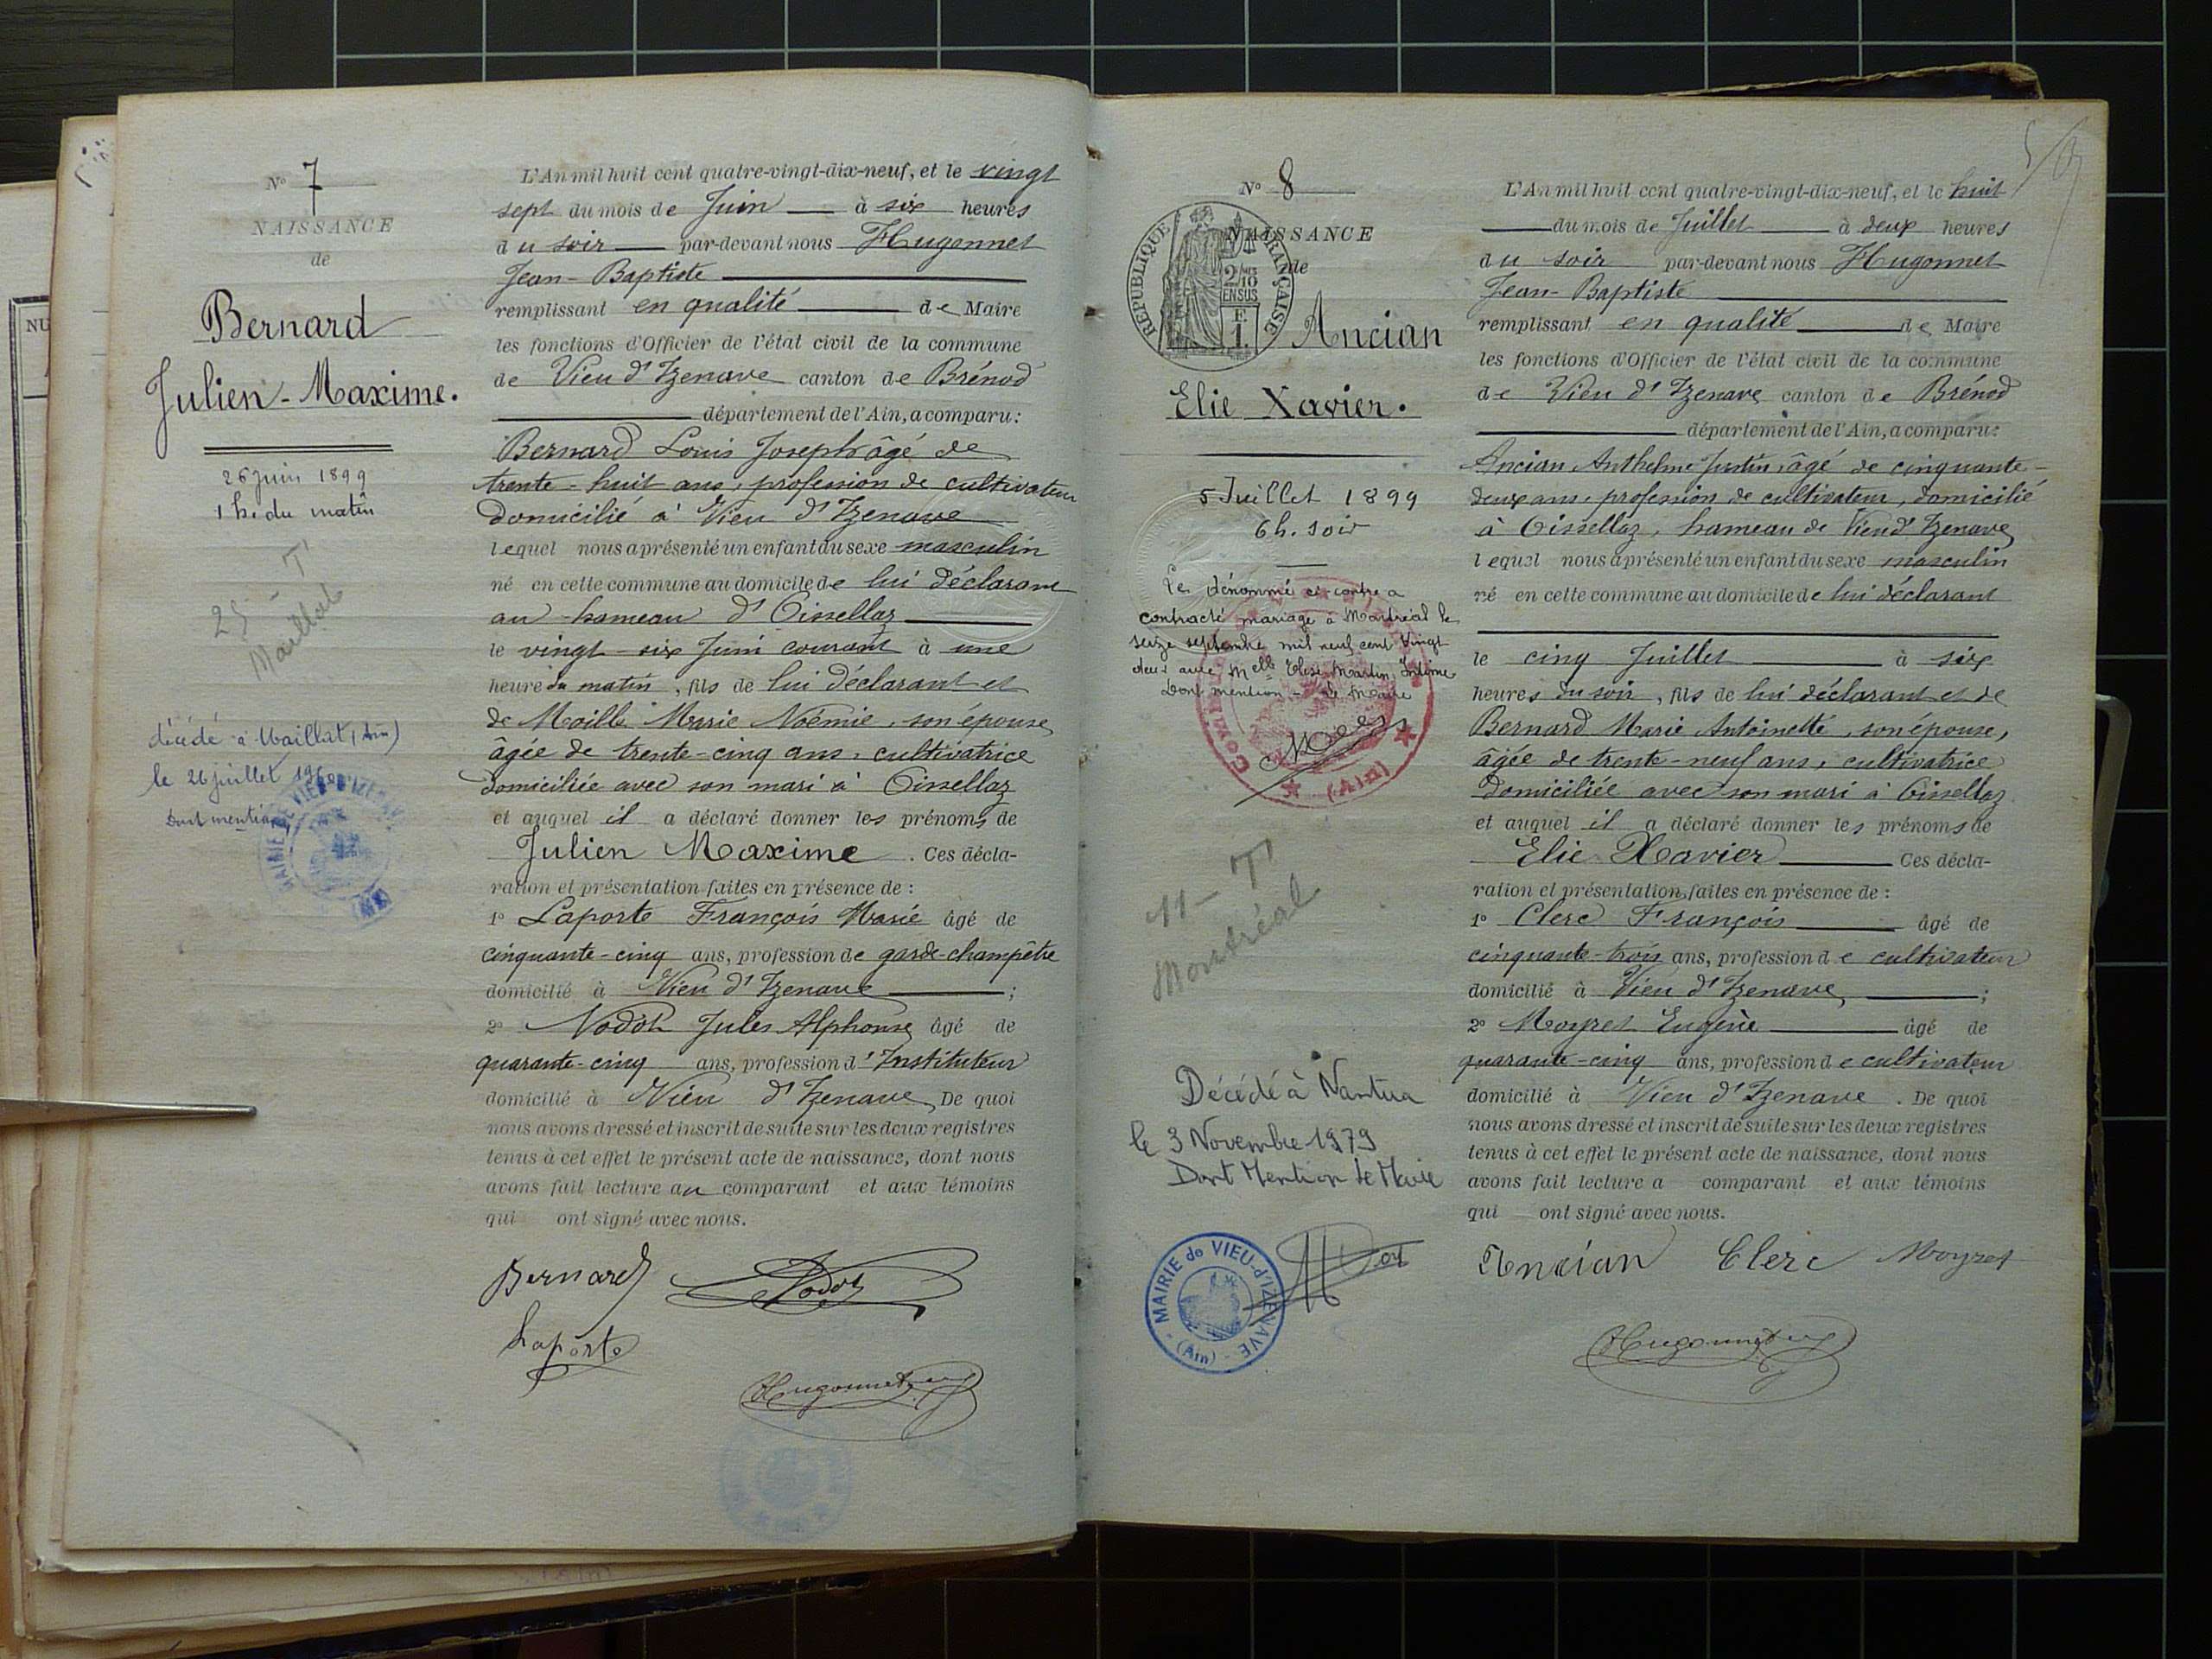 NU
N° 7
NAISSANCE
de
Bernard
Julien-Maxime.
26 juin 1899
1 h. du matin
25 - T'
Maillat
décédé à Maillat (Ain)
le 26 juillet
Dont mention
L'An mil huit cent quatre-vingt-dix-neuf, et le vingt
sept du mois de Juin à six heures
du soir par-devant nous Hugonnet
Jean-Baptiste
remplissant en qualité de Maire
les fonctions d'Officier de l'état civil de la commune
de Vieu d'Izenave canton de Brénod
département de l'Ain, a comparu:
Bernard Louis Joseph âgé de
trente-huit ans, profession de cultivateur
domicilié à Vieu d'Izenave
lequel nous a présenté un enfant du sexe masculin
né en cette commune au domicile de lui déclarant
au hameau d'Oissellaz
le vingt-six Juin courant à une
heure du matin, fils de lui déclarant et
de Marie Noémie, son épouse,
âgée de trente-cinq ans, cultivatrice
domiciliée avec son mari à Oissellaz
et auquel il a déclaré donner les prénoms de
Julien Maxime. Ces décla-
ration et présentation faites en présence de :
1° Laporte François Marie âgé de
cinquante-cinq ans, profession de garde-champêtre
domicilié à Vieu d'Izenave ;
2° Nodot Jules Alphonse âgé de
quarante-cinq ans, profession d'Instituteur
domicilié à Vieu d'Izenave. De quoi
nous avons dressé et inscrit de suite sur les deux registres
tenus à cet effet le présent acte de naissance, dont nous
avons fait lecture au comparant et aux témoins
qui ont signé avec nous.
Bernard Nodot
Laporte
Hugonnet
N° 8
RÉPUBLIQUE FRANÇAISE
2/10 EN SUS
NAISSANCE
de
Ancian
Elie Xavier.
5 Juillet 1899
6 h. soir
Le dénommé ci-contre a
contracté mariage à Montréal le
seize septembre mil neuf cent vingt
deux avec Melle Elise Martin
Dont mention - Le Maire
(Ain)
11 - T'
Montréal
Décédé à Nantua
le 3 Novembre 1979
Dont Mention Le Maire
MAIRIE de VIEU-d'IZENAVE
(Ain)
L'An mil huit cent quatre-vingt-dix-neuf, et le huit
du mois de Juillet à deux heures
du soir par-devant nous Hugonnet
Jean-Baptiste
remplissant en qualité de Maire
les fonctions d'Officier de l'état civil de la commune
de Vieu d'Izenave canton de Brénod
département de l'Ain, a comparu:
Ancian Anthelme Justin, âgé de cinquante-
deux ans, profession de cultivateur, domicilié
à Oissellaz, hameau de Vieu d'Izenave
lequel nous a présenté un enfant du sexe masculin
né en cette commune au domicile de lui déclarant
le cinq Juillet à six
heures du soir, fils de lui déclarant et de
Bernard Marie Antoinette, son épouse,
âgée de trente-neuf ans, cultivatrice
domiciliée avec son mari à Oissellaz
et auquel il a déclaré donner les prénoms de
Elie Xavier Ces décla-
ration et présentation faites en présence de :
1° Clerc François âgé de
cinquante-trois ans, profession de cultivateur
domicilié à Vieu d'Izenave ;
2° Moyret Eugène âgé de
quarante-cinq ans, profession de cultivateur
domicilié à Vieu d'Izenave. De quoi
nous avons dressé et inscrit de suite sur les deux registres
tenus à cet effet le présent acte de naissance, dont nous
avons fait lecture a comparant et aux témoins
qui ont signé avec nous.
Ancian Clerc Moyret
Hugonnet